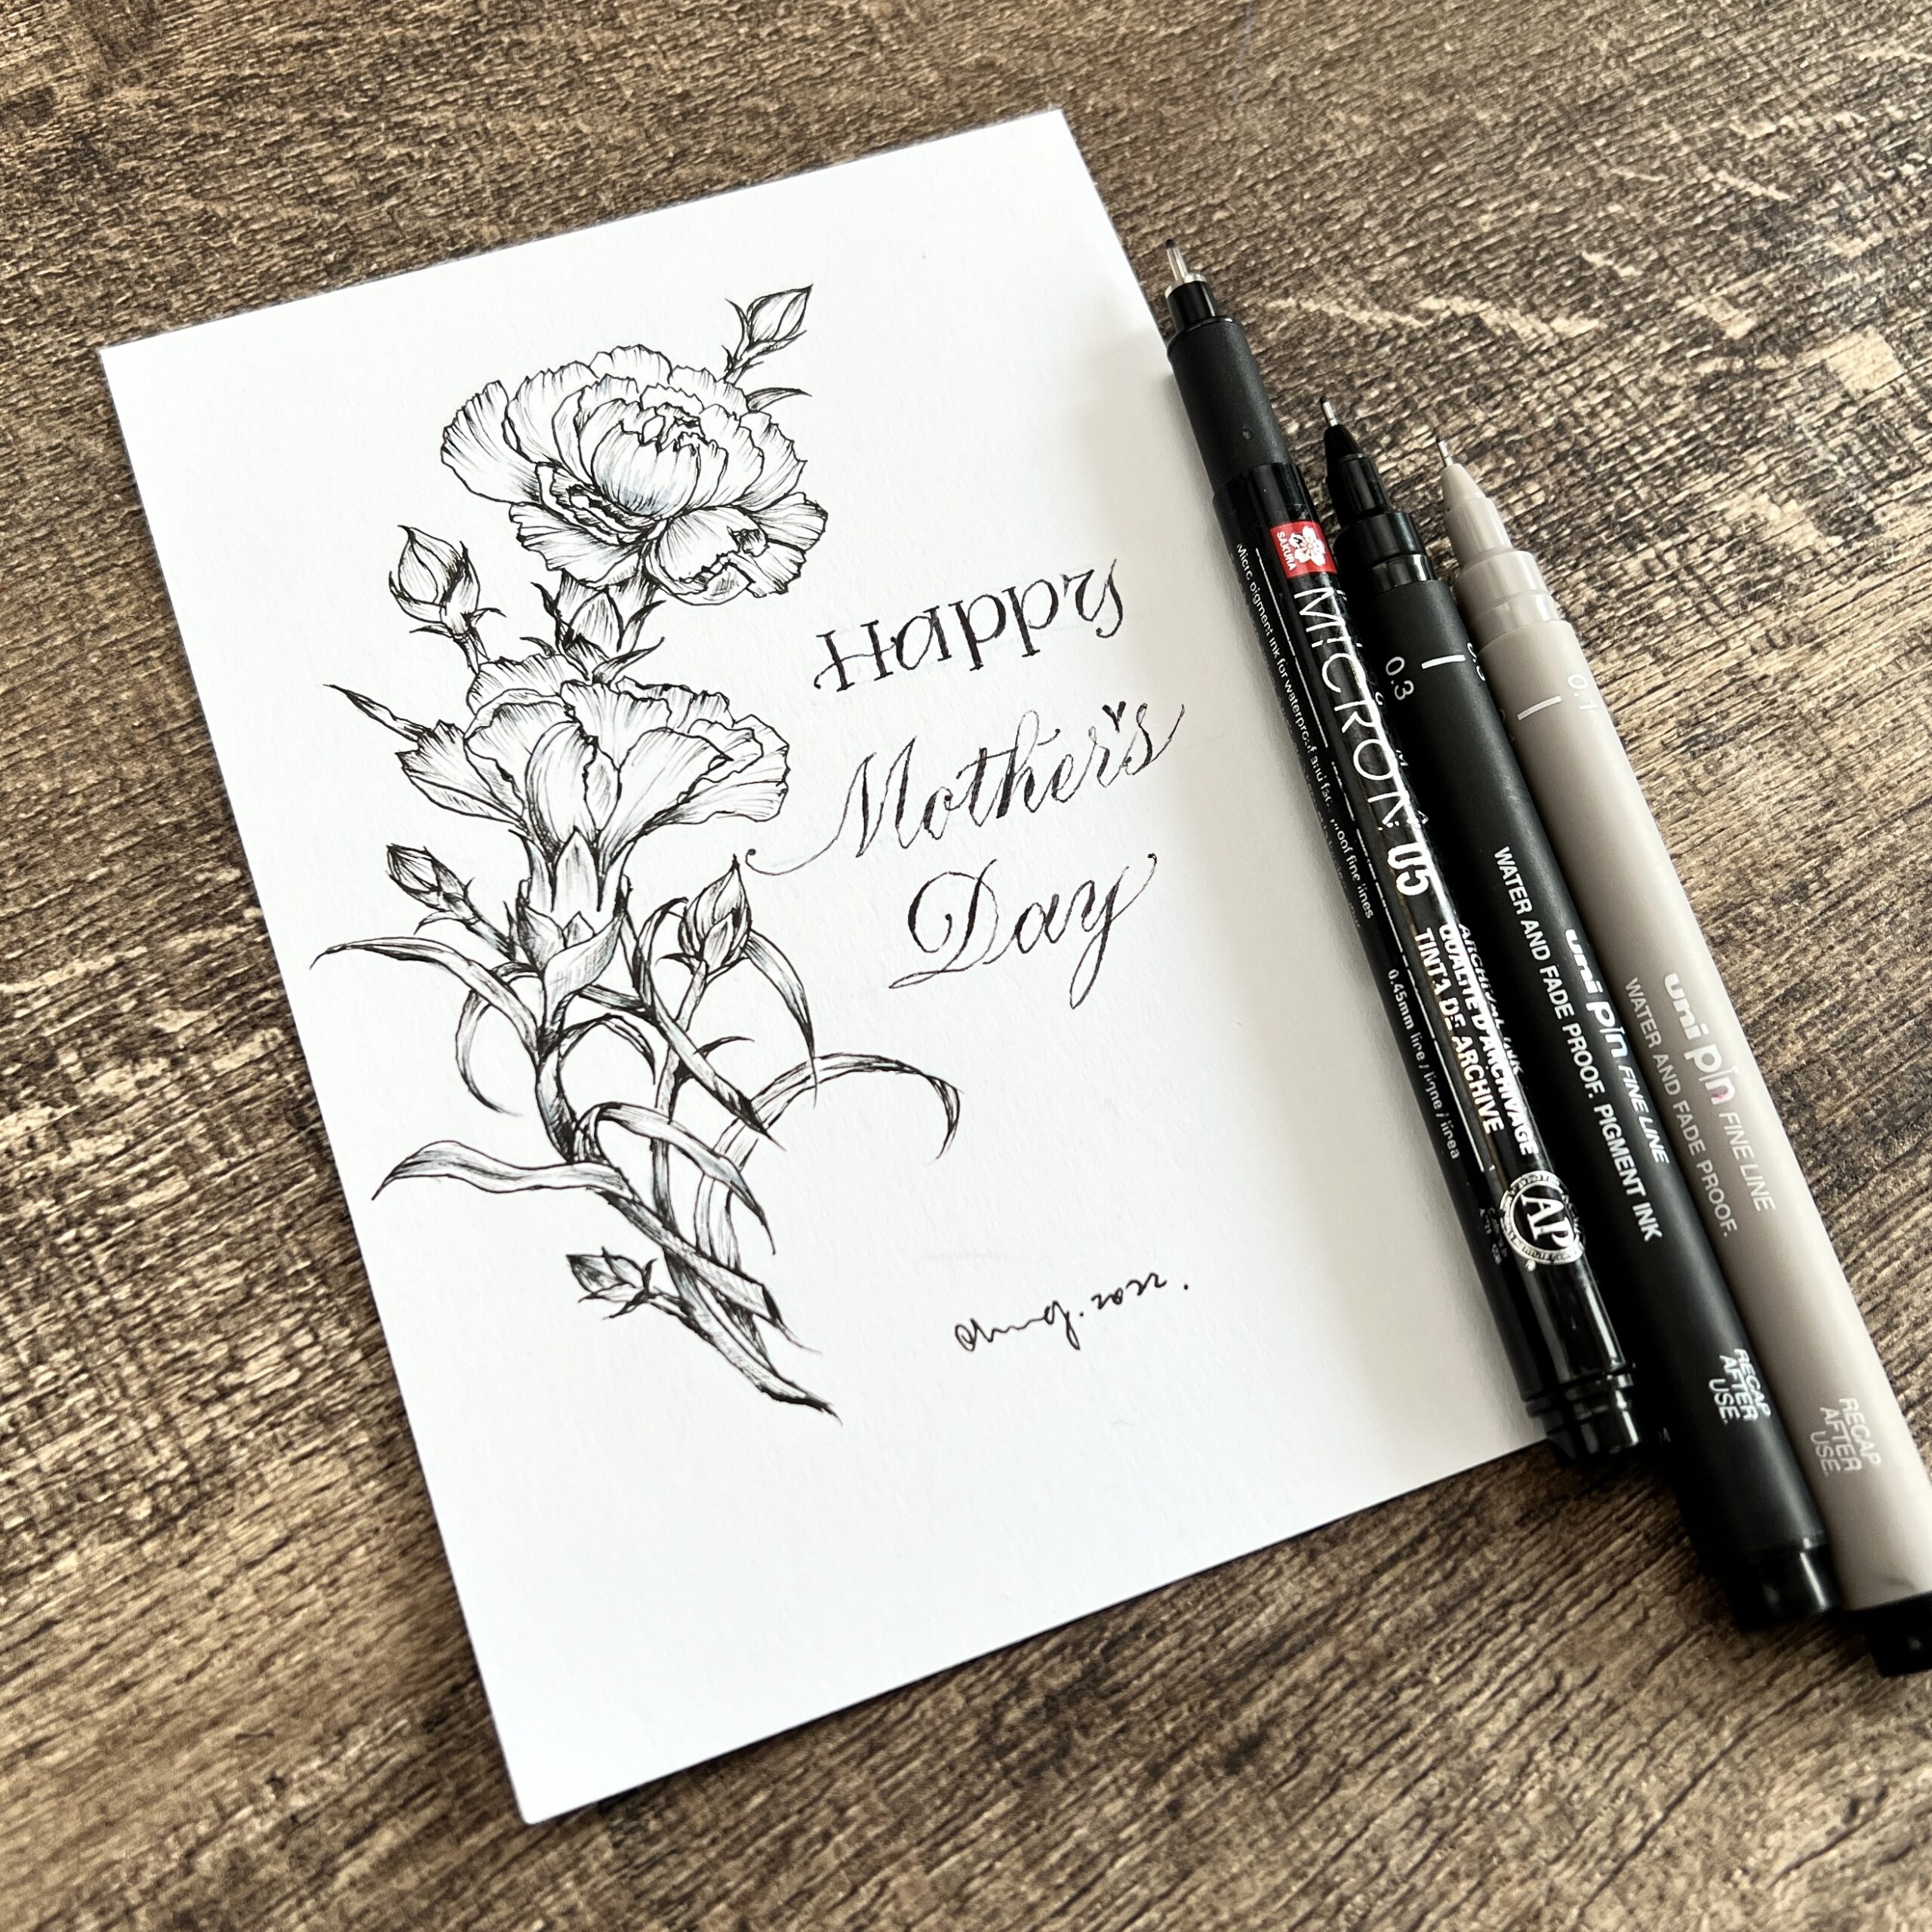 Happy
Mother's
Day
2022.
SAKURA
MICRON 05
Micro pigment ink for waterproof and
proof fine lines
0.45mm line / ligne / linea
ARCHIVAL INK
QUALITÉ D'ARCHIVAGE
TINTA DE ARCHIVE
AP
0.3
uni pin FINE LINE
WATER AND FADE PROOF. PIGMENT INK
RECAP
AFTER
USE.
0.1
uni pin FINE LINE
WATER AND FADE PROOF.
RECAP
AFTER
USE.